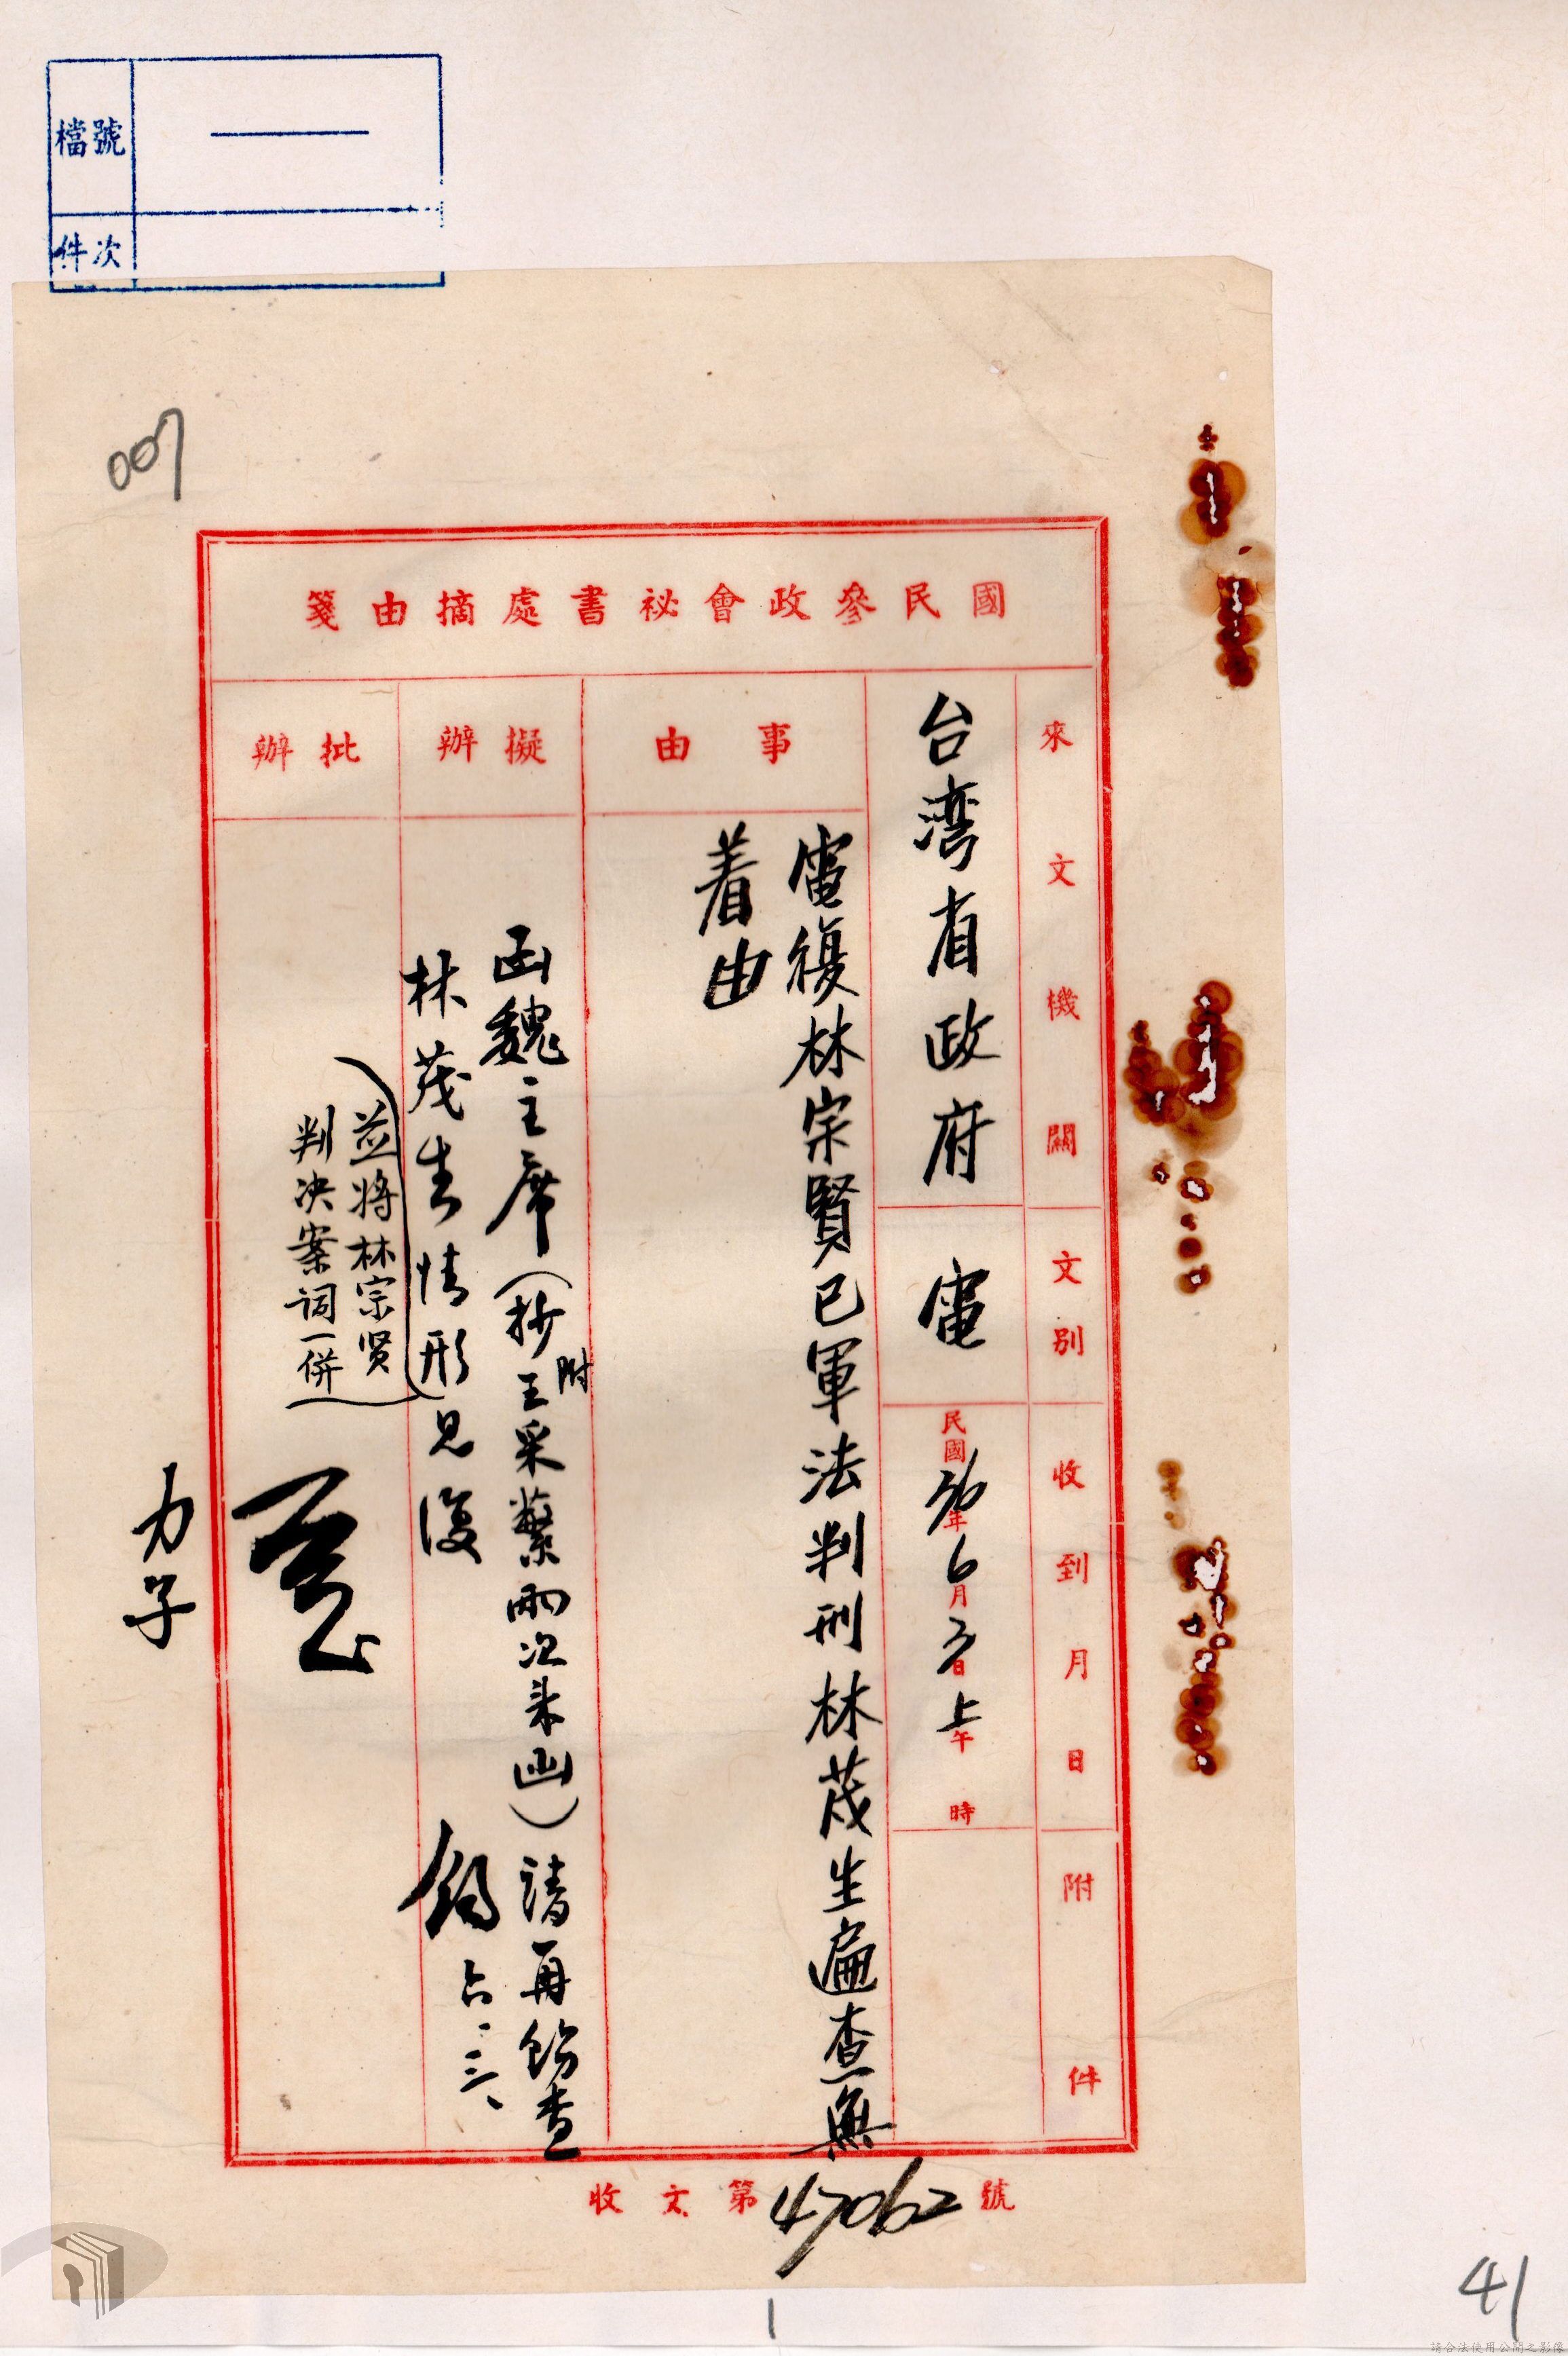 檔號
件次
007
國民參政會祕書處摘由箋
來文機關
台湾省政府
文別
電
收到月日
民國36年6月3日上午 時
附件
事由
電復林宗賢已軍法判刑林茂生遍查無
着由
擬辦
函魏主席（抄附王采蘩兩次来函）請再飭查
林茂生情形見復
六.三、
批辦
並将林宗贤
判决案词一併
力子
收文第47062號
1
41
請合法使用公開之影像